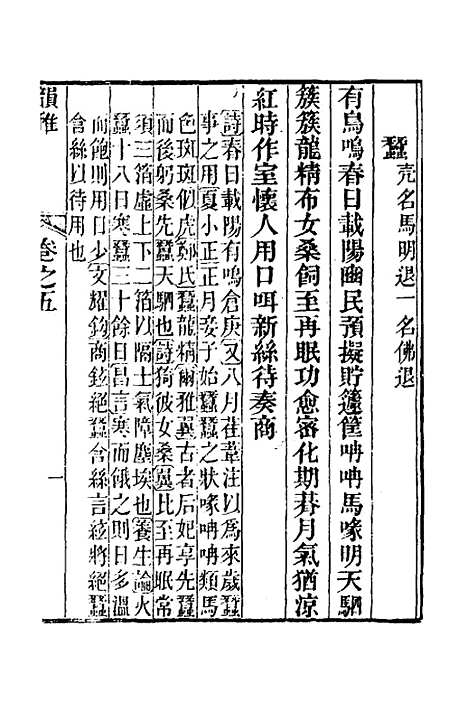 蠶 殼名馬明退一名佛退
有鳥鳴春日載陽豳民預擬貯籧筐呥呥馬喙明天駟
簇簇龍精布女桑飼至再眠功愈密化期朞月氣猶涼
紅時作室懷人用口咡新絲待奏商
詩春日載陽有鳴倉庚又八月萑葦注以爲來歲蠶
事之用夏小正正月妾子始蠶蠶之狀喙呥呥類馬
色斑斑似虎鄭氏蠶龍精爾雅翼古者后妃享先蠶
而後躬桑先蠶天駟也詩猗彼女桑翼比至再眠常
須三箔虛上下二箔以隔土氣障塵埃也養生論火
蠶十八日寒蠶三十餘日昌言寒而餓之則日多溫
而飽則用日少文耀鉤商弦絕蠶含絲言絃將絕蠶
含絲以待用也
韻雅
卷之五
一